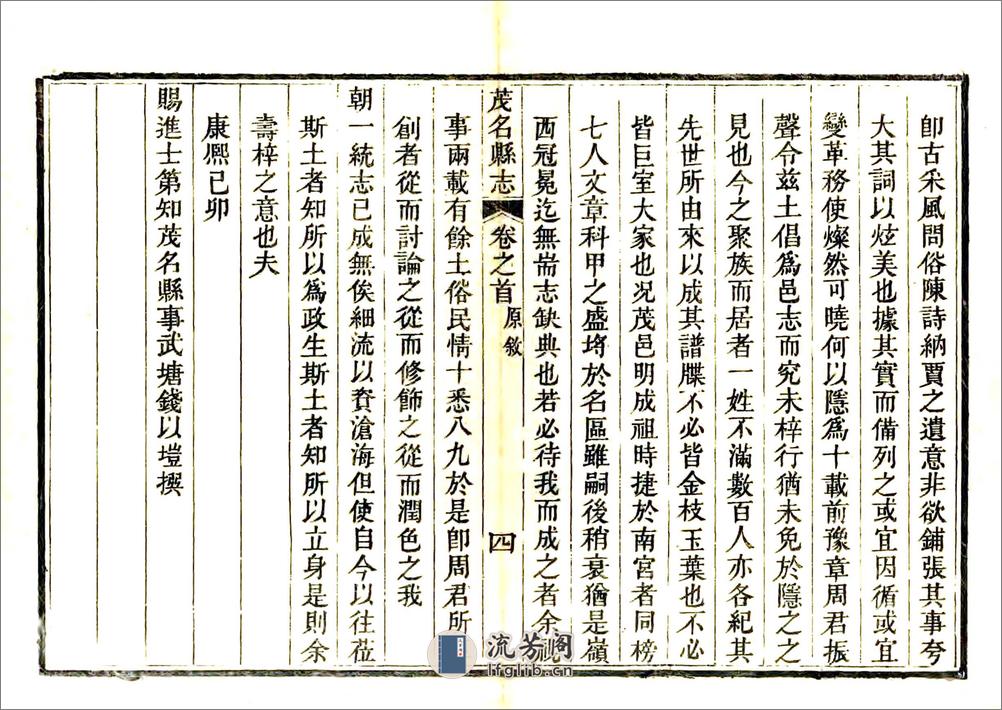 卽古采風問俗陳詩納賈之遺意非欲鋪張其事夸
大其詞以炫美也據其實而備列之或宜因循或宜
變革務使燦然可曉何以隱爲十載前豫章周君振
聲令兹土倡爲邑志而究未梓行猶未免於隱之之
見也今之聚族而居者一姓不滿數百人亦各紀其
先世所由來以成其譜牒不必皆金枝玉葉也不必
皆巨室大家也况茂邑明成祖時捷於南宮者同榜
七人文章科甲之盛埒於名區雖嗣後稍衰猶是嶺
西冠冕迄無耑志缺典也若必待我而成之者余
茂名縣志 卷之首 原敘 四
事兩載有餘土俗民情十悉八九於是卽周君所
創者從而討論之從而修飾之從而潤色之我
朝一統志已成無俟細流以資滄海但使自今以往蒞
斯土者知所以爲政生斯土者知所以立身是則余
壽梓之意也夫
康熈己卯
賜進士第知茂名縣事武塘錢以塏撰
流芳阁
lfglib.cn